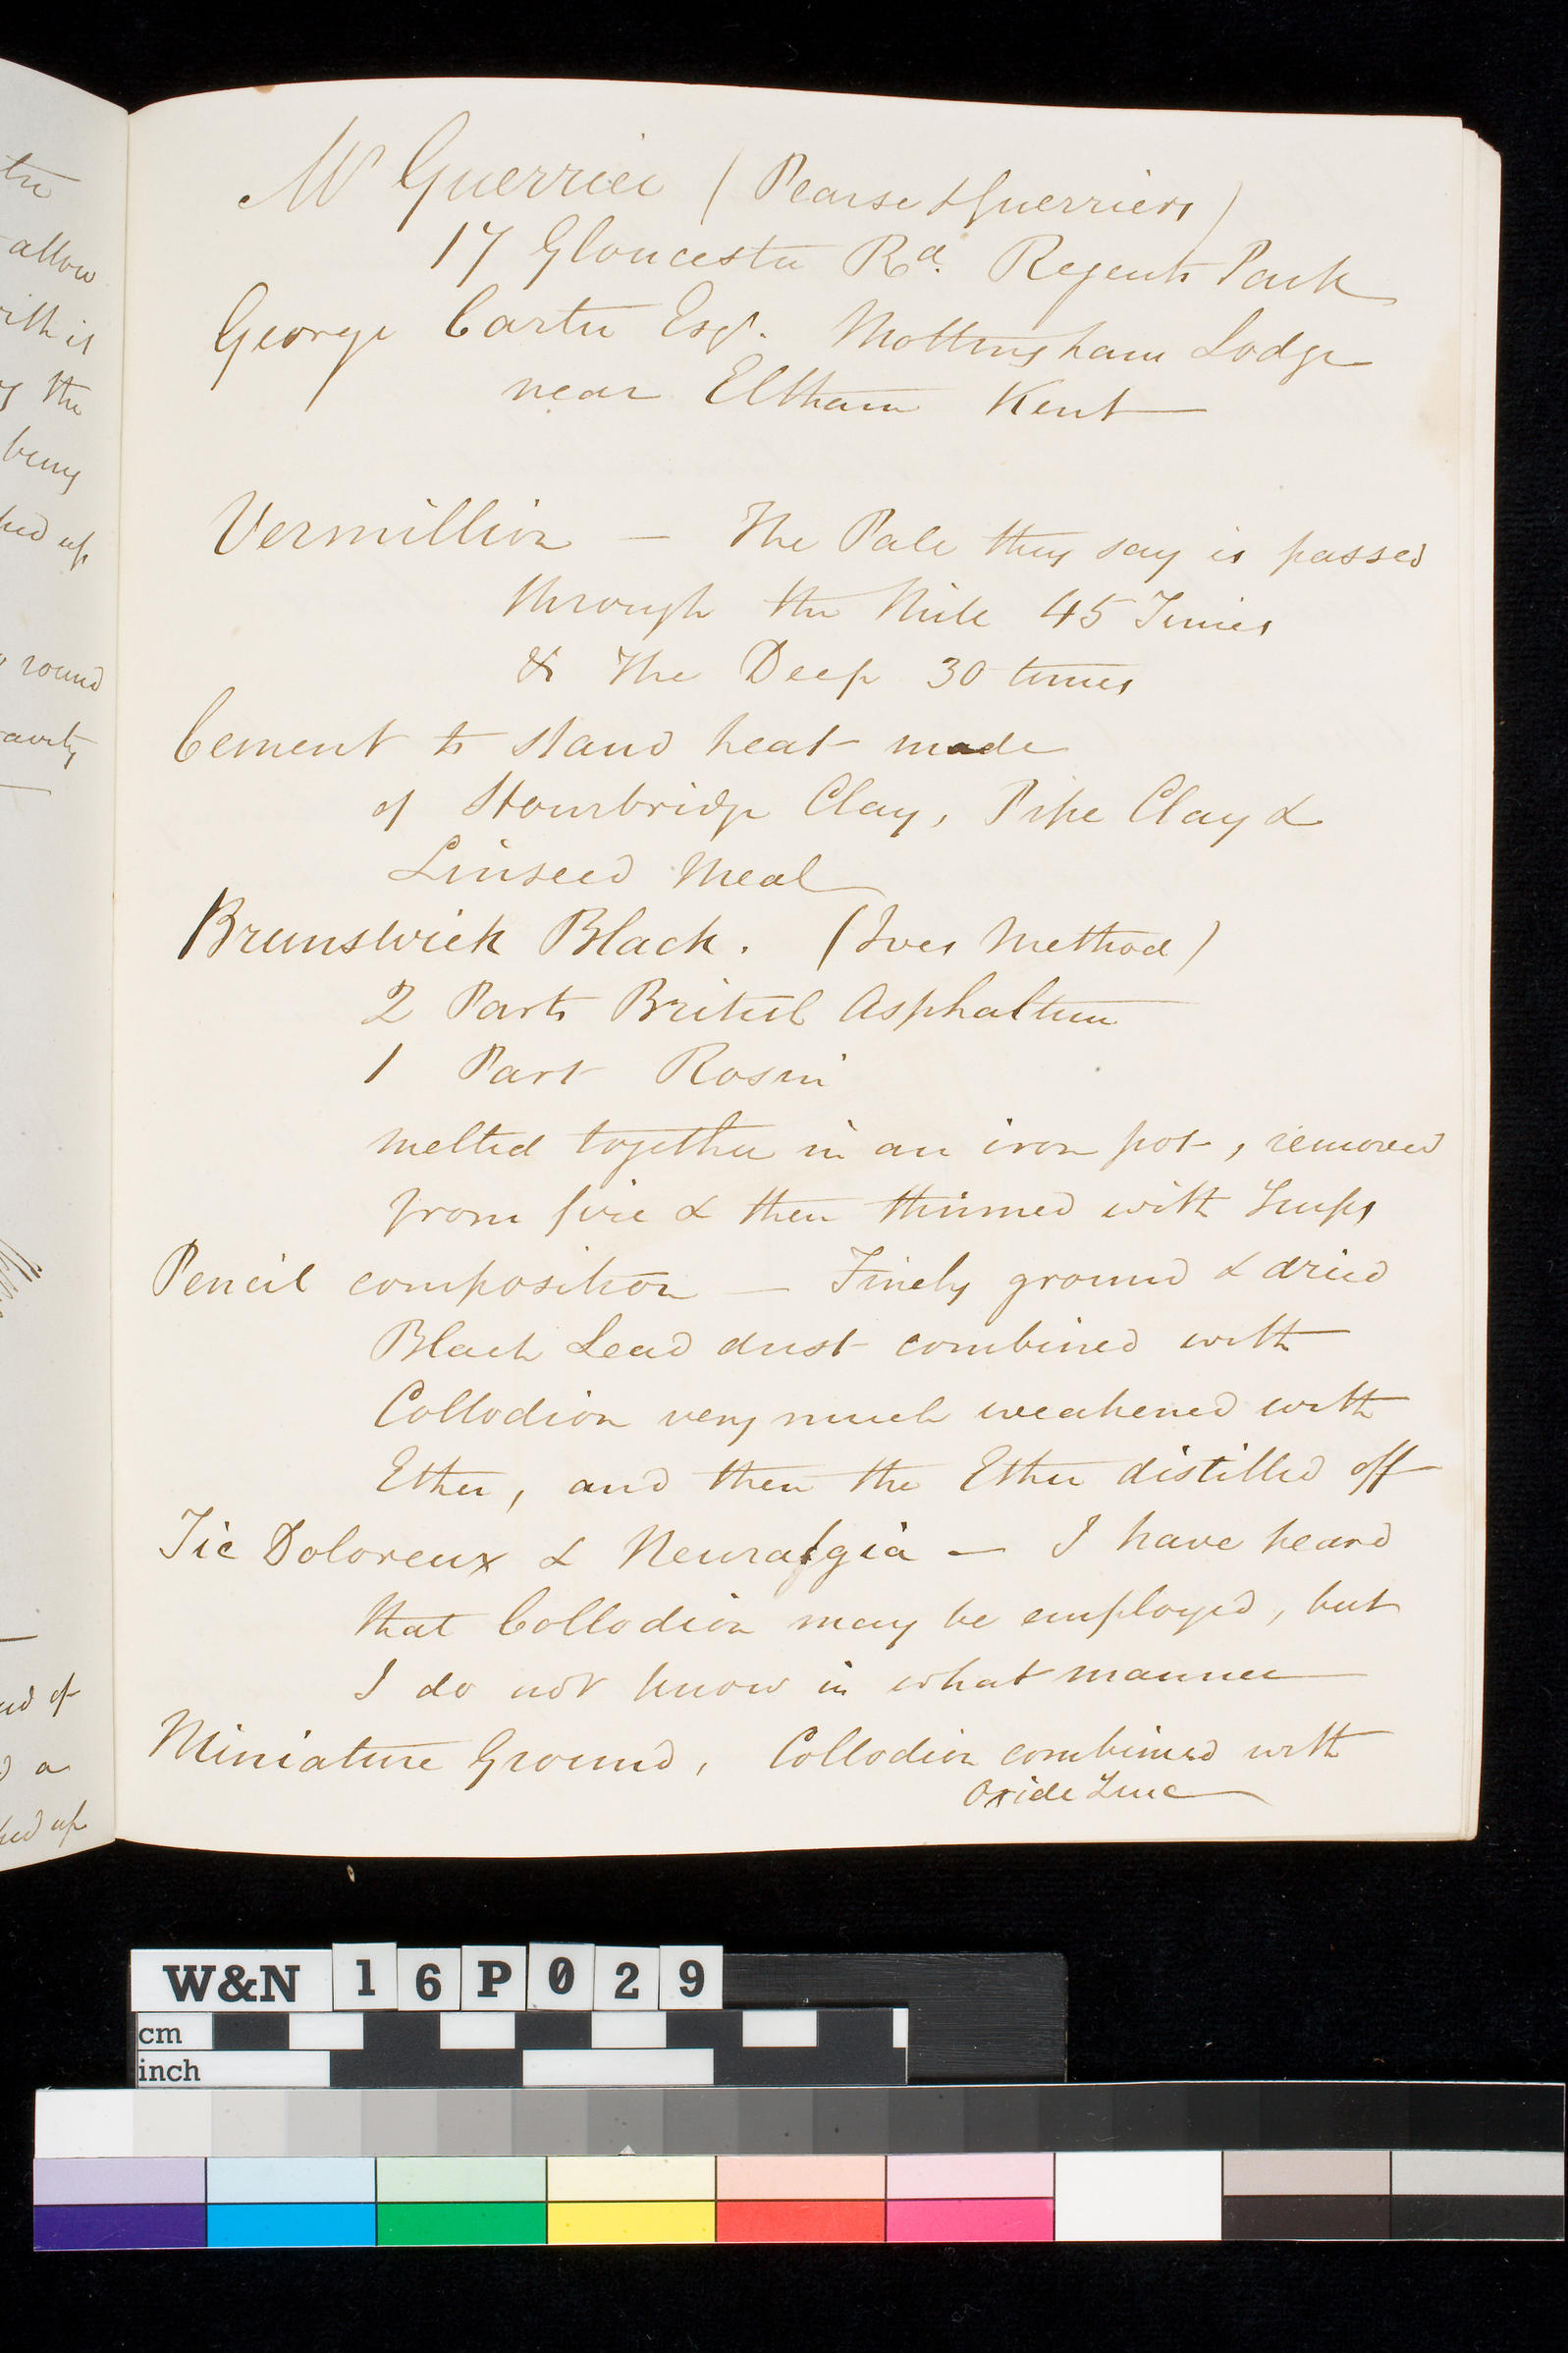 Mr Guerrier (Pearse & Guerriers)
17 Gloucester Rd. Regents Park
George Carter Esqr. Mottingham Lodge
near Eltham Kent
Vermillion — The Pale they say is passed
through the Mill 45 Times
& The Deep 30 times
Cement to stand heat made
of Stourbridge Clay, Pipe Clay &
Linseed Meal
Brunswick Black. (Ives Method)
2 Parts British Asphaltum
1 Part Rosin
melted together in an iron pot, removed
from fire & then thinned with Turps
Pencil composition — Finely ground & dried
Black Lead dust combined with
Collodion very much weakened with
Ether, and then the Ether distilled off
Tic Doloreux & Neuralgia — I have heard
that Collodion may be employed, but
I do not know in what manner
Miniature Ground, Collodion combined with
Oxide Zinc
allow
with it
the
being
up
round
of
a
up
W&N 16P029
cm
inch